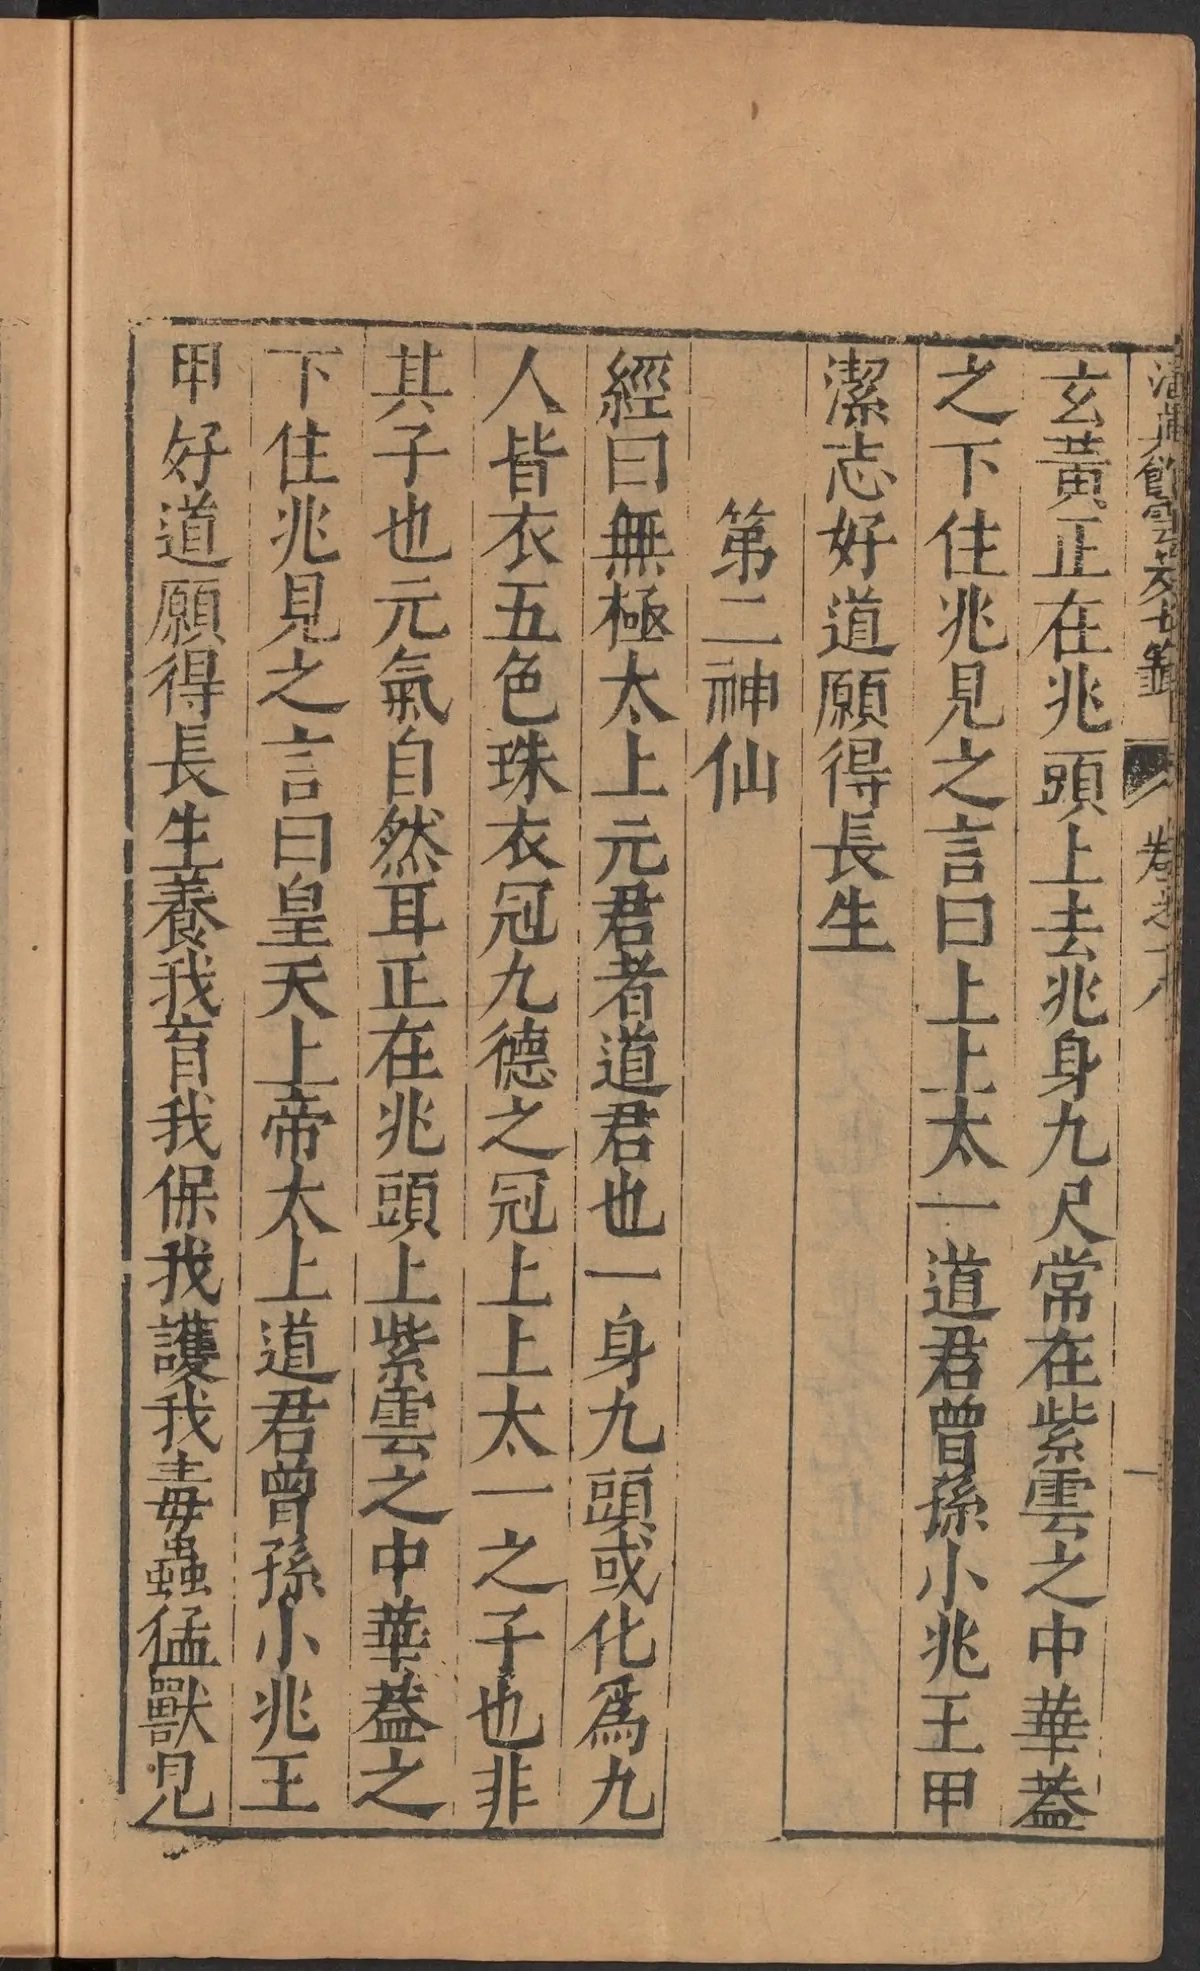 清眞館雲笈七籤 卷之十八 一
玄黃正在兆頭上去兆身九尺常在紫雲之中華蓋
之下住兆見之言曰上上太一道君曾孫小兆王甲
潔志好道願得長生
第二神仙
經曰無極太上元君者道君也一身九頭或化爲九
人皆衣五色珠衣冠九德之冠上上太一之子也非
其子也元氣自然耳正在兆頭上紫雲之中華蓋之
下住兆見之言曰皇天上帝太上道君曾孫小兆王
甲好道願得長生養我育我保我護我毒蟲猛獸見